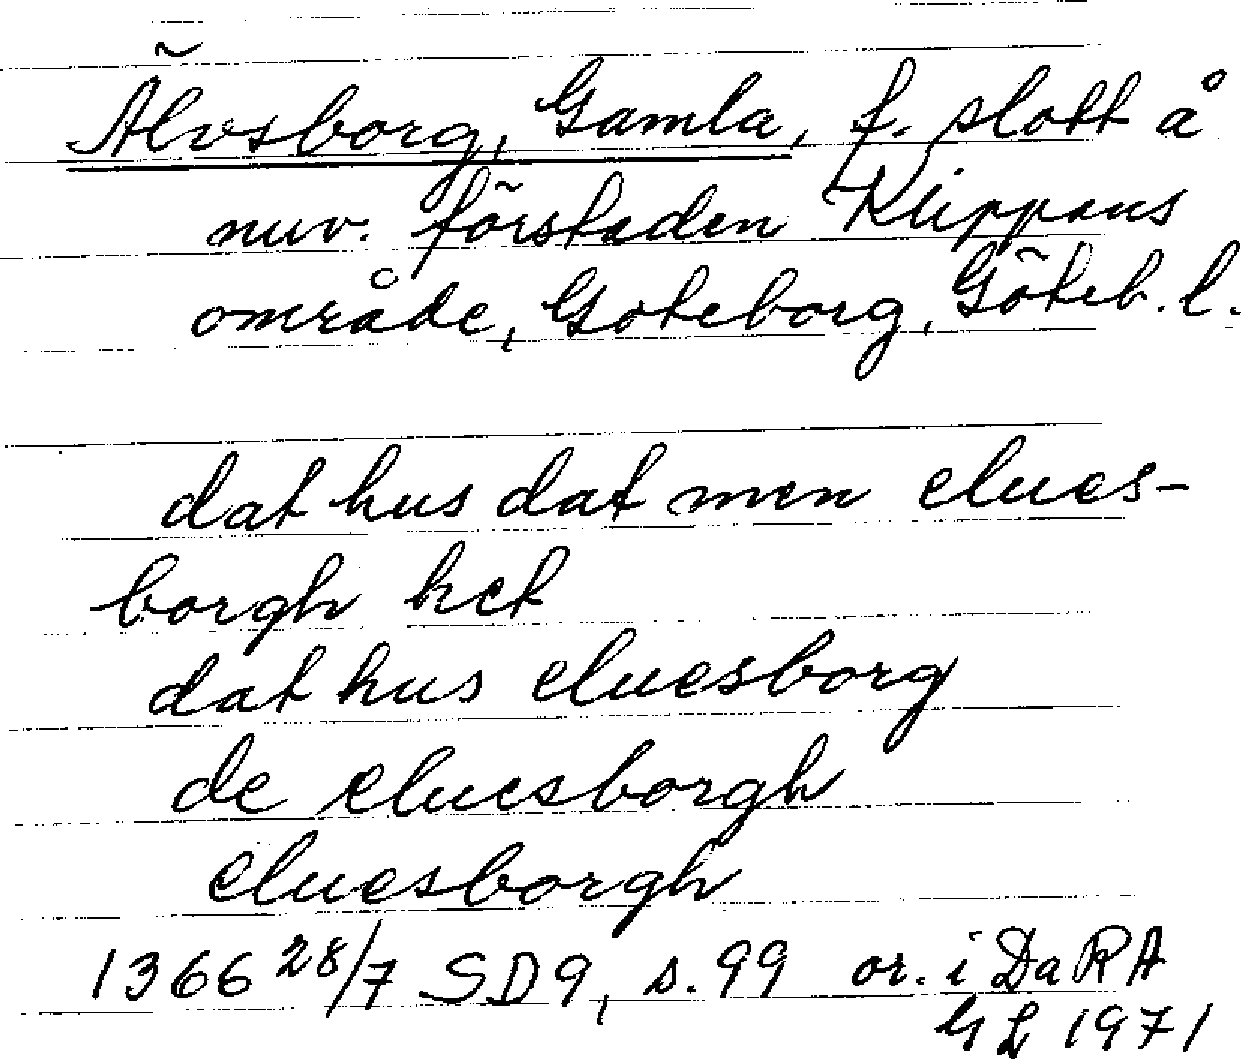 Älvsborg, Gamla, f. slott å
nuv. förstaden Klippans
område, Göteborg, Göteb. l.
dat hus dat men elues-
borgh het
dat hus eluesborg
de eluesborgh
eluesborgh
1366 28/7 SD9, s. 99 or. i DaRA
GL 1971